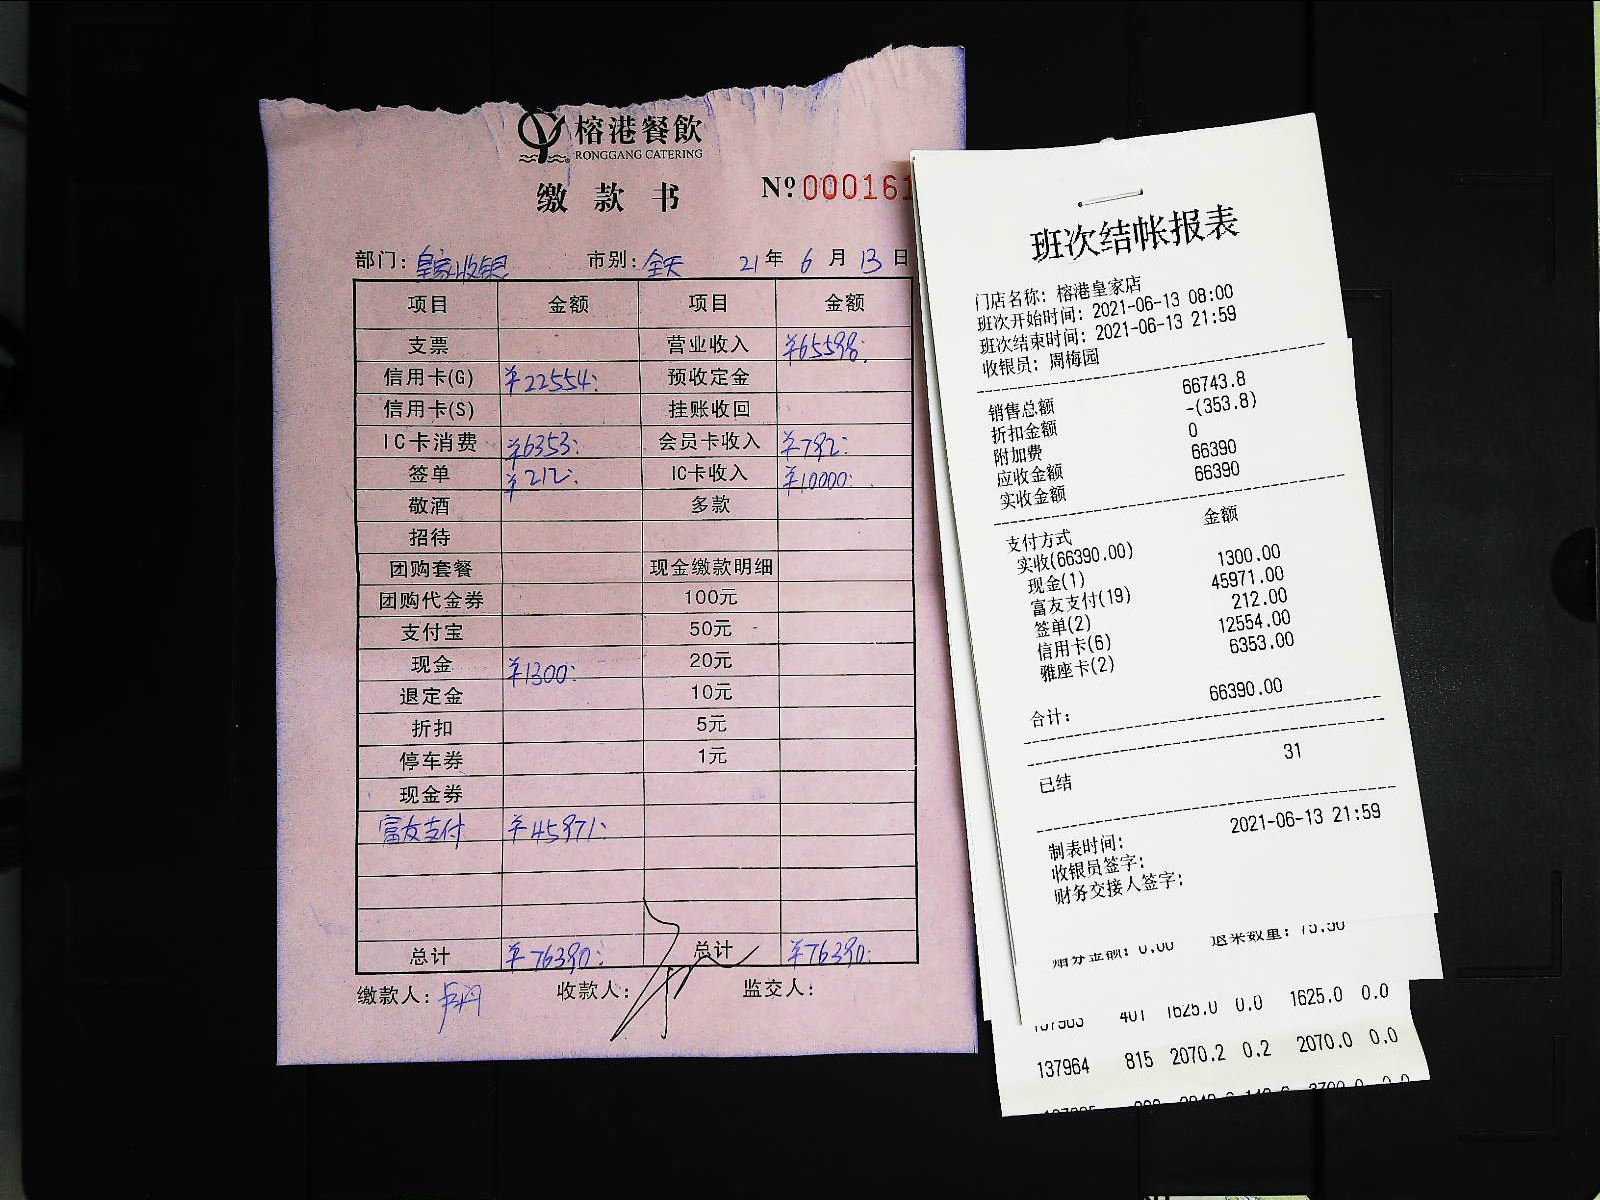 榕港餐飲
RONGGANG CATERING
缴款书
Nº 000161
部门: 皇家收银 市别: 全天 21年 6月 13日
项目 金额 项目 金额
支票 营业收入 ¥65598:
信用卡(G) ¥22554: 预收定金
信用卡(S) 挂账收回
IC卡消费 ¥6353: 会员卡收入 ¥792:
签单 ¥212: IC卡收入 ¥10000:
敬酒 多款
招待
团购套餐 现金缴款明细
团购代金券 100元
支付宝 50元
现金 ¥1300: 20元
退定金 10元
折扣 5元
停车券 1元
现金券
富友支付 ¥45971:
总计 ¥76390: 总计 ¥76390:
缴款人: 卢丹 收款人: 监交人:
班次结帐报表
门店名称: 榕港皇家店
班次开始时间: 2021-06-13 08:00
班次结束时间: 2021-06-13 21:59
收银员: 周梅园
销售总额 66743.8
折扣金额 -(353.8)
附加费 0
应收金额 66390
实收金额 66390
支付方式 金额
实收(66390.00)
现金(1) 1300.00
富友支付(19) 45971.00
签单(2) 212.00
信用卡(6) 12554.00
雅座卡(2) 6353.00
合计: 66390.00
已结 31
制表时间: 2021-06-13 21:59
收银员签字:
财务交接人签字:
401 1625.0 0.0 1625.0 0.0
137964 815 2070.2 0.2 2070.0 0.0